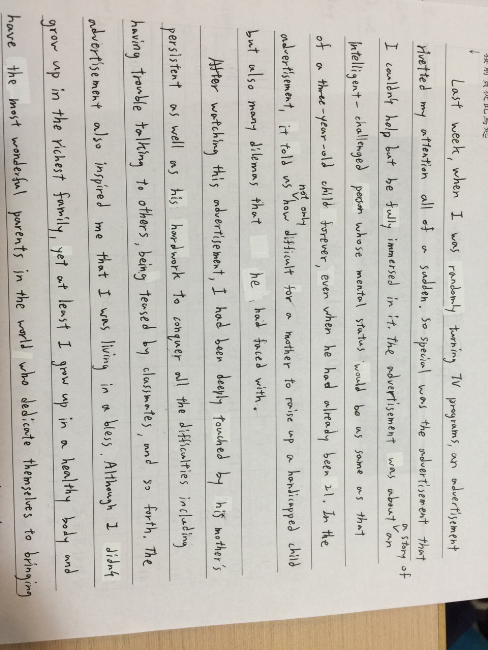 Last week, when I was randomly turning TV programs, an advertisement
rivetted my attention all of a sudden. So special was the advertisement that
I couldn't help but be fully immersed in it. The advertisement was about a story of an
Intelligent-challenged person whose mental status would be as same as that
of a three-year-old child forever, even when he had already been 21. In the
advertisement, it told us not only how difficult for a mother to raise up a handicapped child
but also many dilemas that he had faced with.
After watching this advertisement, I had been deeply touched by his mother's
persistent as well as his hardwork to conquer all the difficulties including
having trouble talking to others, being teased by classmates, and so forth. The
advertisement also inspired me that I was living in a bless. Although I didn't
grow up in the richest family, yet at least I grow up in a healthy body and
have the most wonderful parents in the world who dedicate themselves to bringing